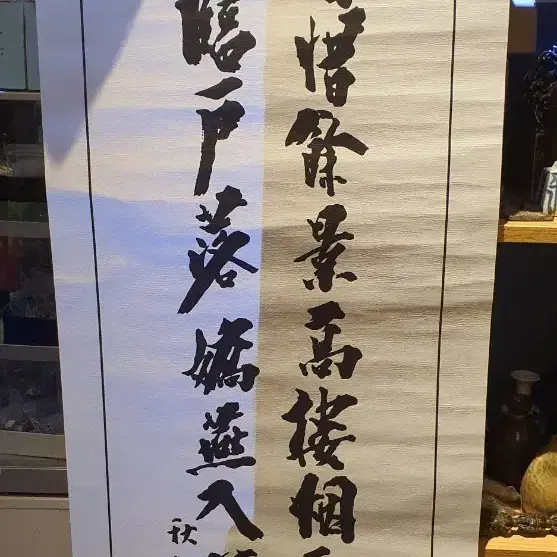 惜餘景高樓烟
臨戶落嬌燕入
秋